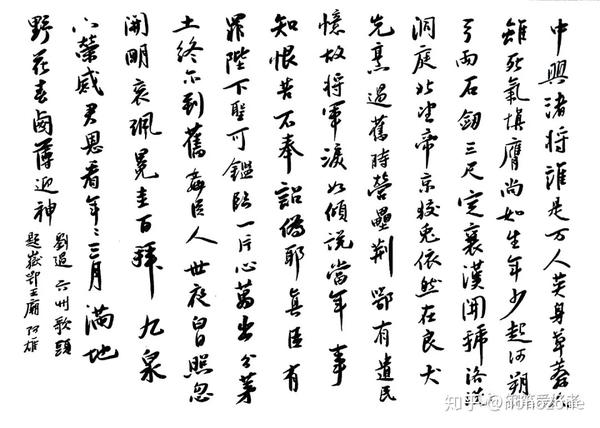 中興諸将誰是万人英身草莽人
雖死氣填膺尚如生年少起河朔
弓兩石劒三尺定襄漢開虢洛洗
洞庭北望帝京狡兔依然在良犬
先烹過舊時營壘荆鄂有遺民
憶故将軍淚如傾說當年事
知恨苦不奉詔偽耶真臣有
罪陛下聖可鑑臨一片心萬古分茅
土終不到舊姦臣人世夜白日照忽
開明袞珮冕圭百拜九泉
下榮感君恩看年々三月滿地
野花春鹵薄迎神
劉過六州歌頭
題嶽鄂王廟阿雄
知乎